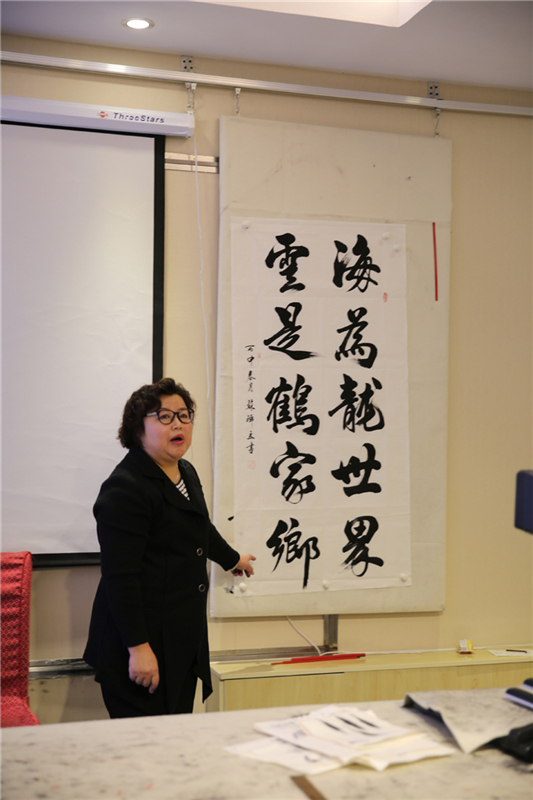 ThreeStars
海為龍世界
雲是鶴家鄉
丙申春月蘇書